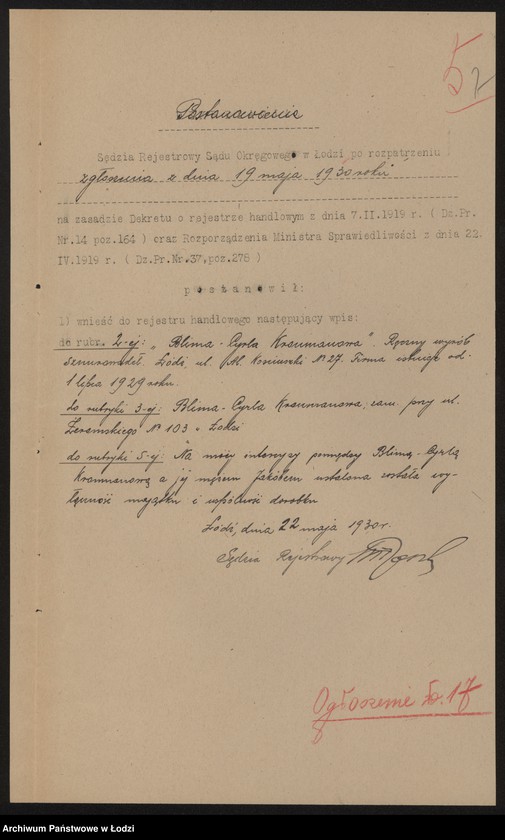 5
7
Postanowienie
Sędzia Rejestrowy Sądu Okręgowego w Łodzi po rozpatrzeniu
zgłoszenia z dnia 19 maja 1930 roku
na zasadzie Dekretu o rejestrze handlowym z dnia 7.II.1919 r. ( Dz.Pr.
Nr.14 poz.164 ) oraz Rozporządzenia Ministra Sprawiedliwości z dnia 22.
IV.1919 r. ( Dz.Pr.Nr.37,poz.278 )
postanowił:
1) wnieść do rejestru handlowego następujący wpis:
do rubr. 2-ej: „Blima-Cyrla Kraumanowa". Ręczny wyrób
sznurowadeł. Łódź, ul. Al. Kościuszki № 27. Firma istnieje od
1 lipca 1929 roku.
do rubryki 3-ej: Blima-Cyrla Kraumanowa, zam. przy ul.
Żeromskiego № 103 w Łodzi
do rubryki 5-ej: Na mocy intercyzy pomiędzy Blimą-Cyrlą
Kraumanową a jej mężem Jakóbem ustalona została wy-
łączność majątku i wspólność dorobku
Łódź, dnia 22 maja 1930 r.
Sędzia Rejestrowy
Ogłoszenie zł. 17
Archiwum Państwowe w Łodzi